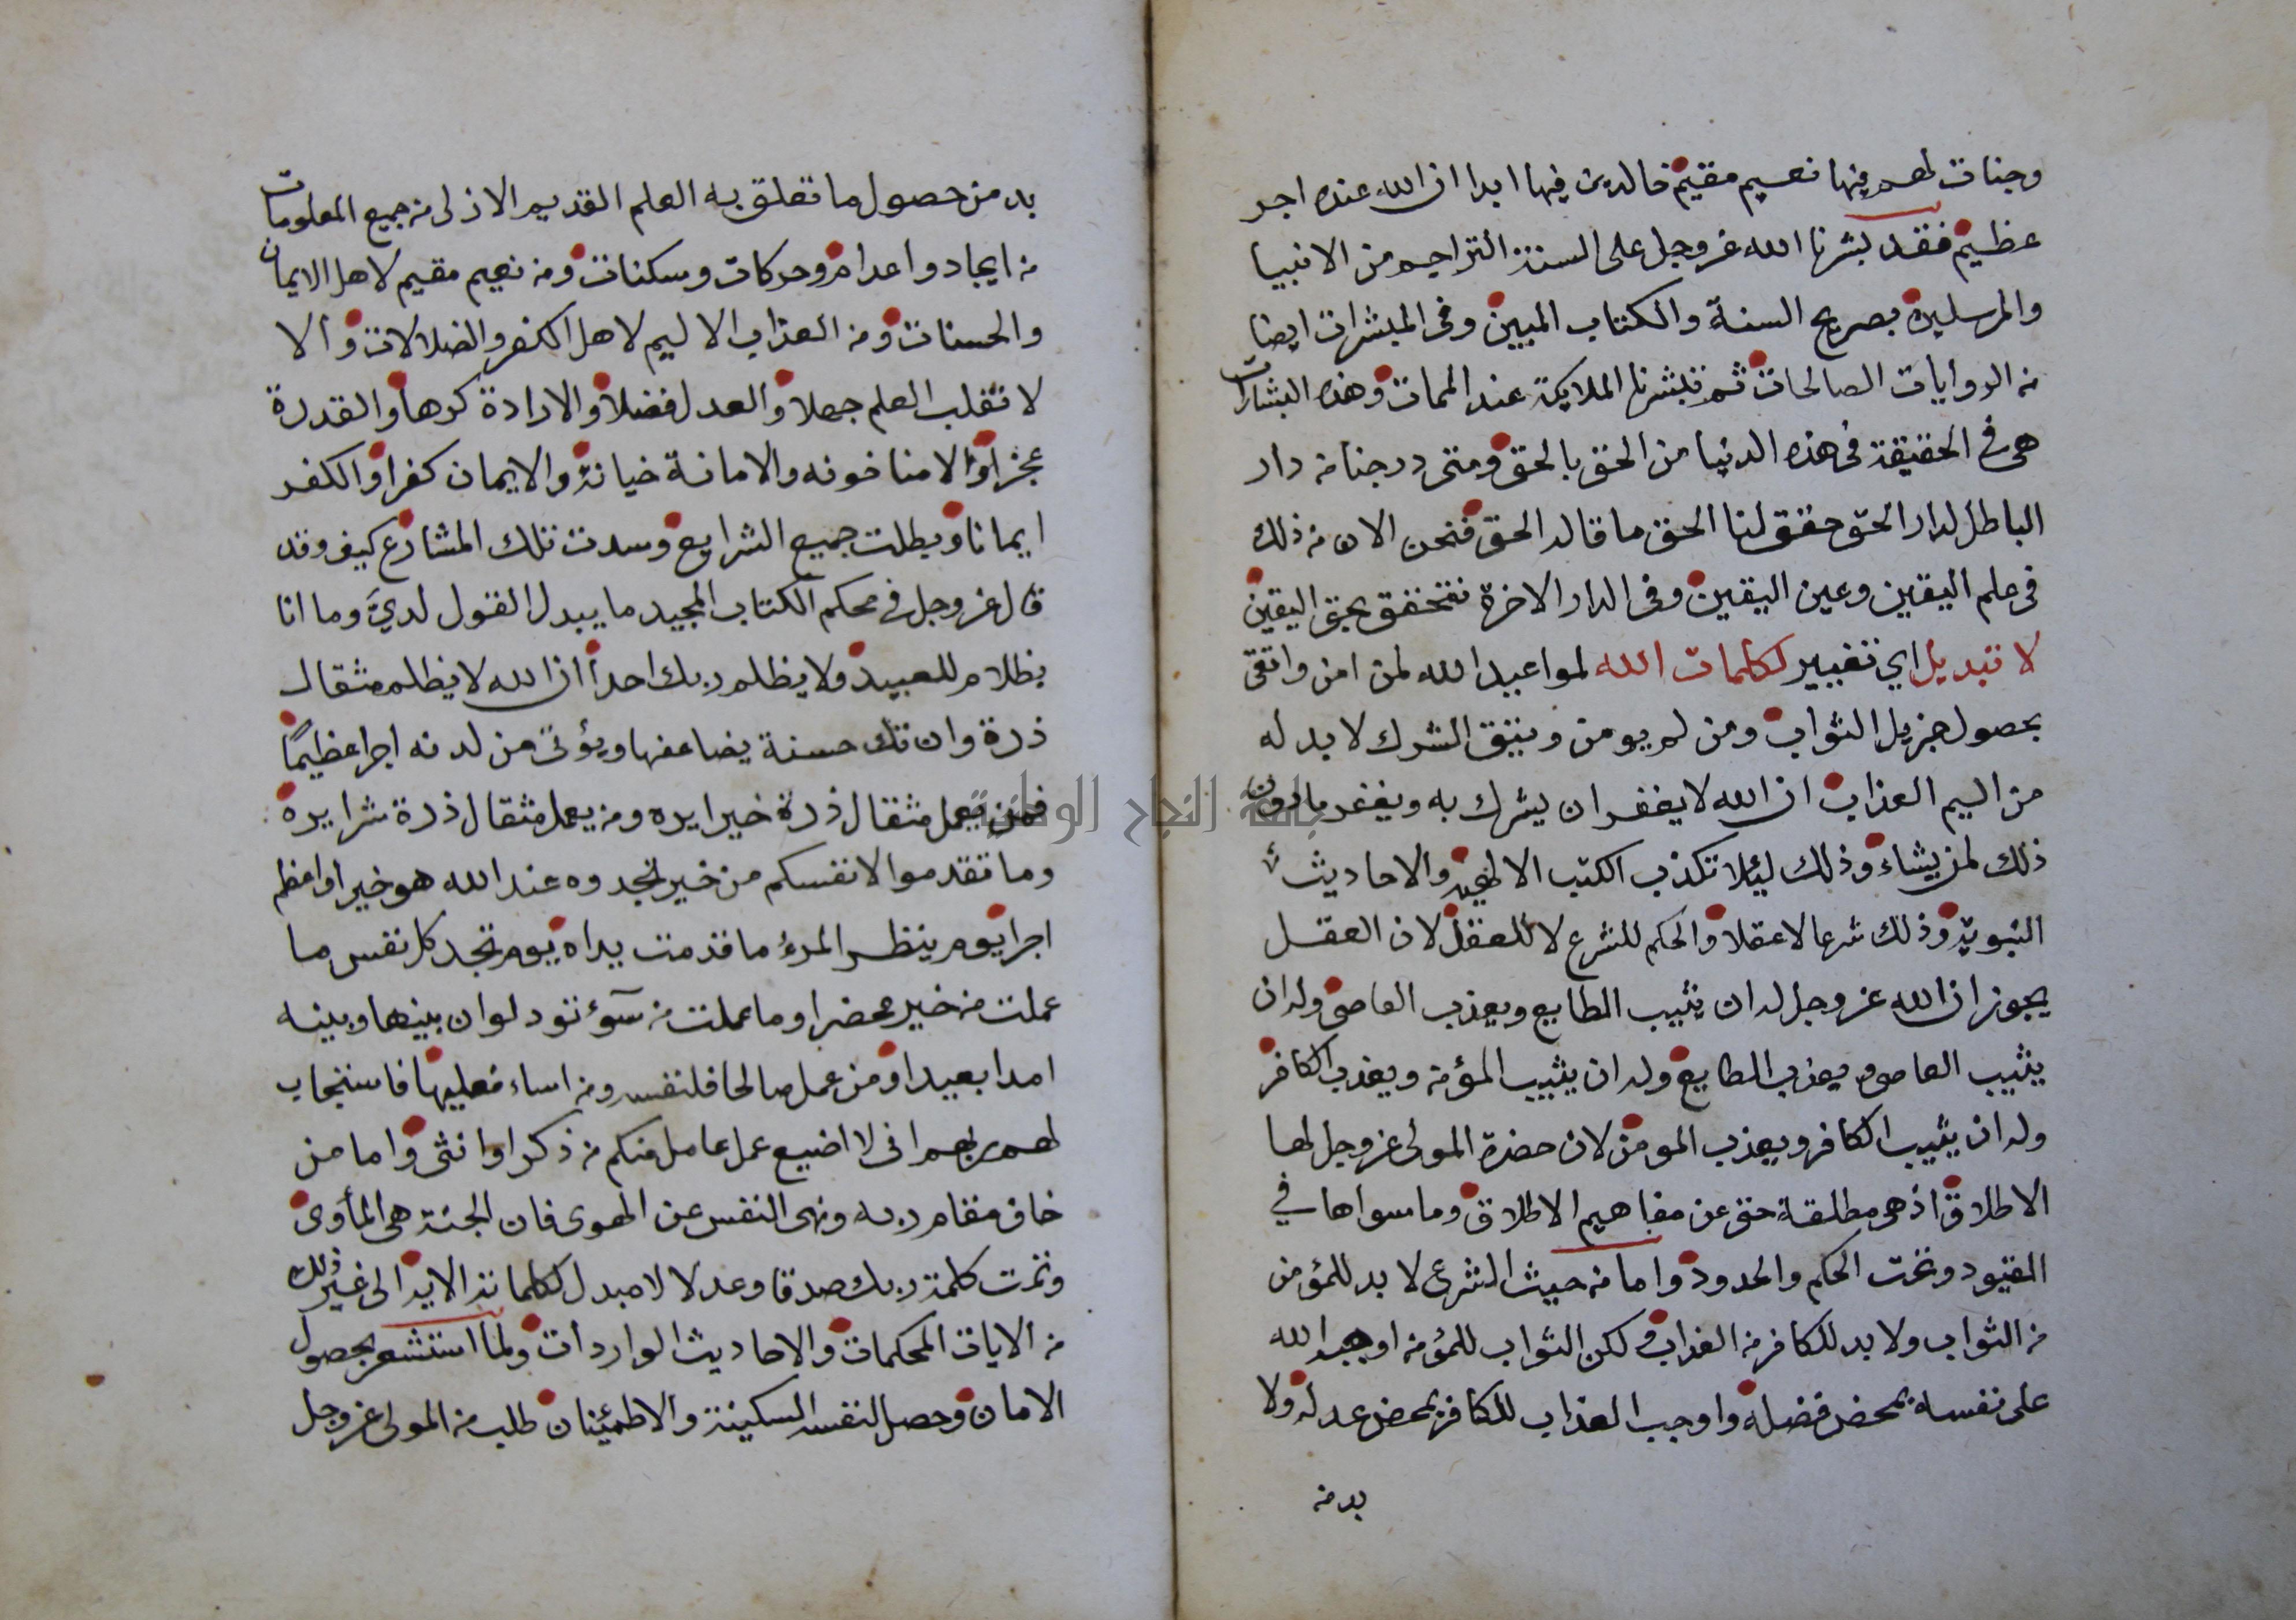 وجنات لهم فيها نعيم مقيم خالدين فيها ابدا ان الله عنده اجر
عظيم فقد بشرنا الله عز وجل على السنة التراجيم من الانبيا
والمرسلين بصريح السنة والكتاب المبين وفي المبشرات ايضا
من الروايات الصالحات ثم تبشرنا الملايكة عند الممات وهذه البشارات
هي في الحقيقة في هذه الدنيا من الحق بالحق ومتى درجنا من دار
الباطل لدار الحق حقق لنا الحق ما قاله الحق فنحن الان من ذلك
في علم اليقين وعين اليقين وفي الدار الاخرة نتحقق بحق اليقين
لا تبديل اي تغيير لكلمات الله لمواعيد الله لمن امن واتقى
بحصول جزيل الثواب ومن لم يومن ويتق الشرك لا بد له
من اليم العذاب ان الله لا يغفر ان يشرك به ويغفر ما دون
ذلك لمن يشاء وذلك ليئلا تكذب الكتب الالهية والاحاديث
النبوية وذلك شرعا لا عقلا والحكم للشرع لا للعقل لان العقل
يجوز ان الله عز وجل له ان يثيب الطايع ويعذب العاصي وله ان
يثيب العاصي ويعذب الطايع وله ان يثيب المؤمن ويعذب الكافر
وله ان يثيب الكافر ويعذب المومن لان حضرة المولى عز وجل لها
الاطلاق اذ هي مطلقة حتى عن مفاهيم الاطلاق وما سواها في
القيود وتحت الحكم والحدود واما من حيث الشرع لا بد للمؤمن
من الثواب ولا بد للكافر من العذاب لكن الثواب للمؤمن اوجبه الله
على نفسه بمحض فضله واوجب العذاب للكافر بمحض عدله ولا
بد من
بد من حصول ما تعلق به العلم القديم الازلي من جميع المعلومات
من ايجاد واعدام وحركات وسكنات ومن نعيم مقيم لاهل الايمان
والحسنات ومن العذاب الاليم لاهل الكفر والضلالات والا
لا نقلب العلم جهلا والعدل فضلا والارادة كرها والقدرة
عجزا والامنا خونه والامانة خيانة والايمان كفرا والكفر
ايمانا وبطلت جميع الشرايع وسدت تلك المشارع كيف وقد
قال عز وجل في محكم الكتاب المجيد ما يبدل القول لديَّ وما انا
بظلام للعبيد ولا يظلم ربك احداً ان الله لا يظلم مثقال
ذرة وان تك حسنة يضاعفها ويؤت من لدنه اجرا عظيماً
فمن يعمل مثقال ذرة خيرا يره ومن يعمل مثقال ذرة شرا يره
وما تقدموا لانفسكم من خير تجدوه عند الله هو خيرا واعظم
اجرا يوم ينظر المرءُ ما قدمت يداه يوم تجد كل نفس ما
عملت من خير محضرا وما عملت من سوٓء تود لو ان بينها وبينه
امدا بعيدا ومن عمل صالحا فلنفسه ومن اساء فعليها فاستجاب
لهم ربهم اني لا اضيع عمل عامل منكم من ذكر او انثى واما من
خاف مقام ربه ونهى النفس عن الهوى فان الجنة هي المأوى
وتمت كلمة ربك صدقا وعدلا لا مبدل لكلماته الاية الى غير ذلك
من الايات المحكمات والاحاديث الواردات ولما استشعر بحصول
الامان وحصل لنفسه السكينة والاطمئنان طلب من المولى عز وجل
جامعة النجاح الوطنية